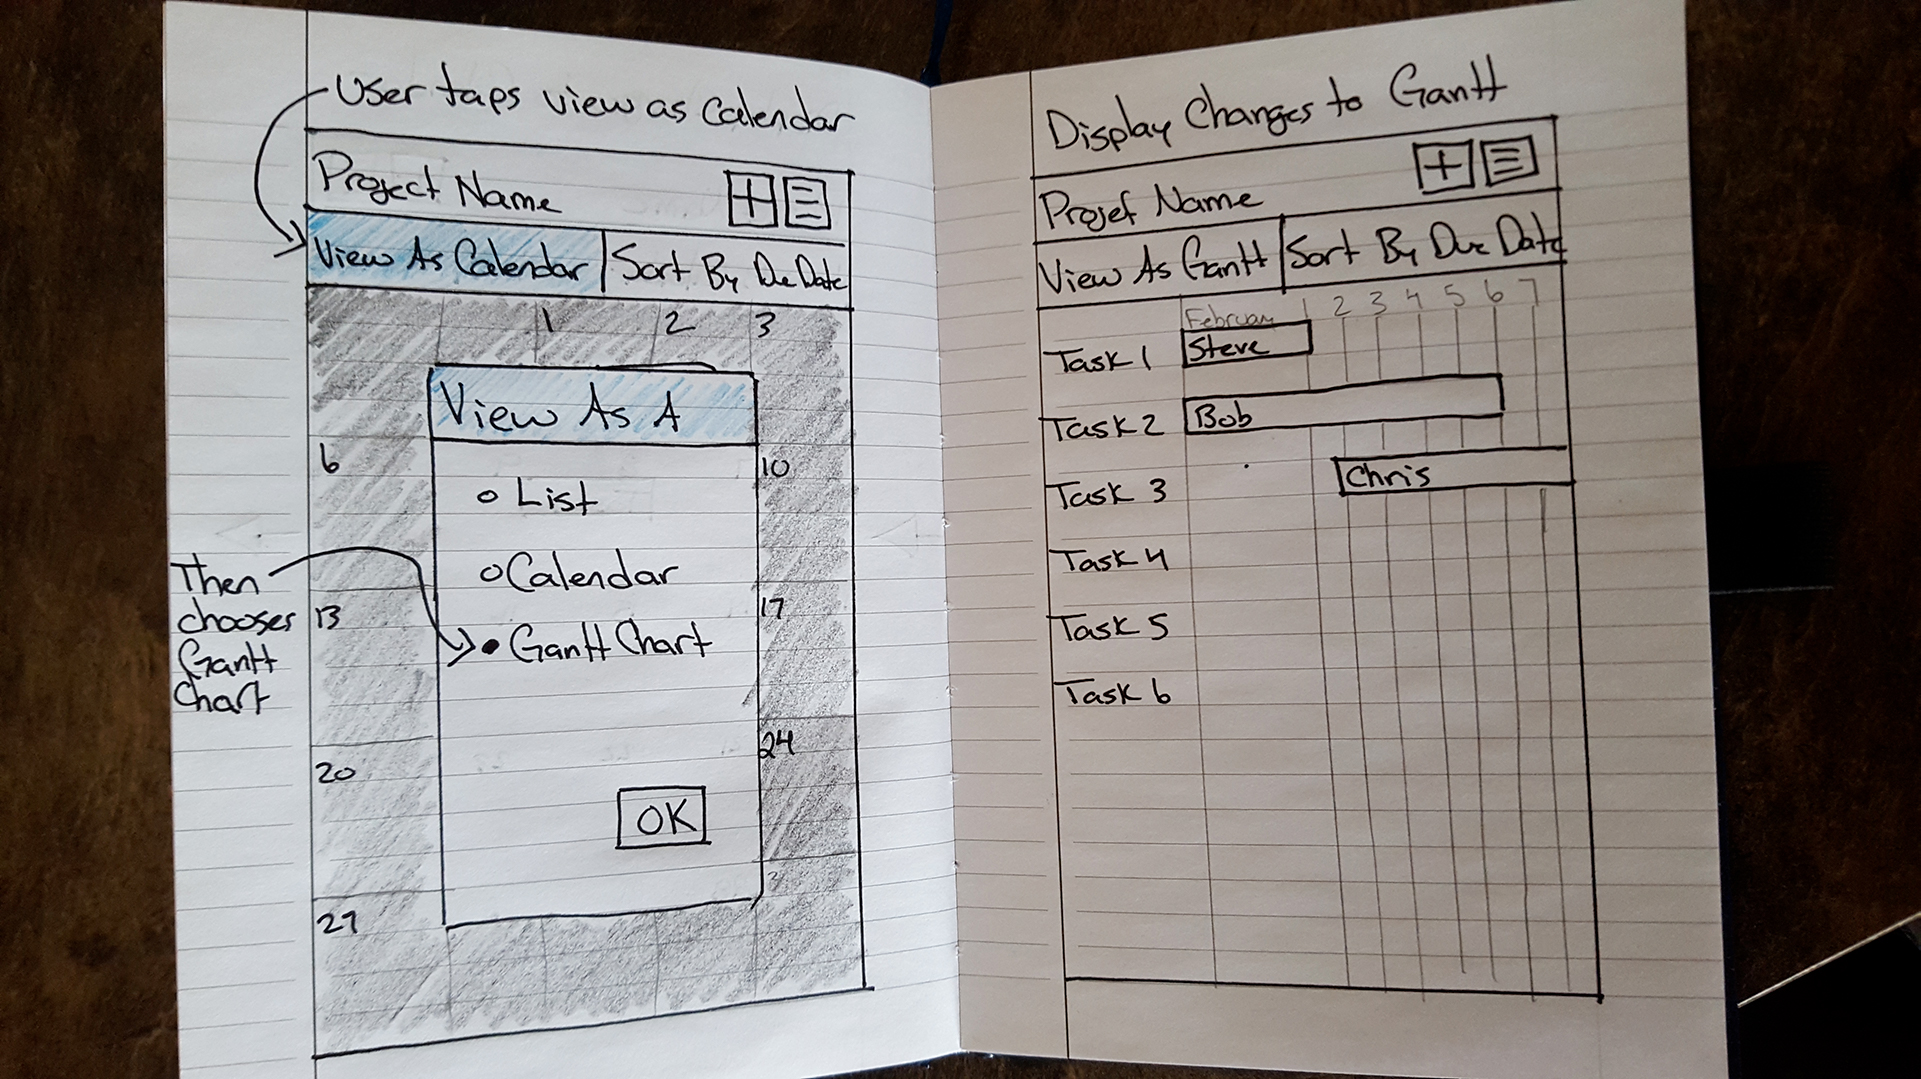 User taps view as Calendar
Project Name
View As Calendar
Sort By Due Date
1 2 3
View As A
6
10
List
Calendar
Then
chooses
Gantt
Chart
13
17
Gantt Chart
24
20
OK
27
Display Changes to Gantt
Projet Name
View As Gantt
Sort By Due Date
February 1 2 3 4 5 6 7
Task 1
Steve
Task 2
Bob
Task 3
Chris
Task 4
Task 5
Task 6